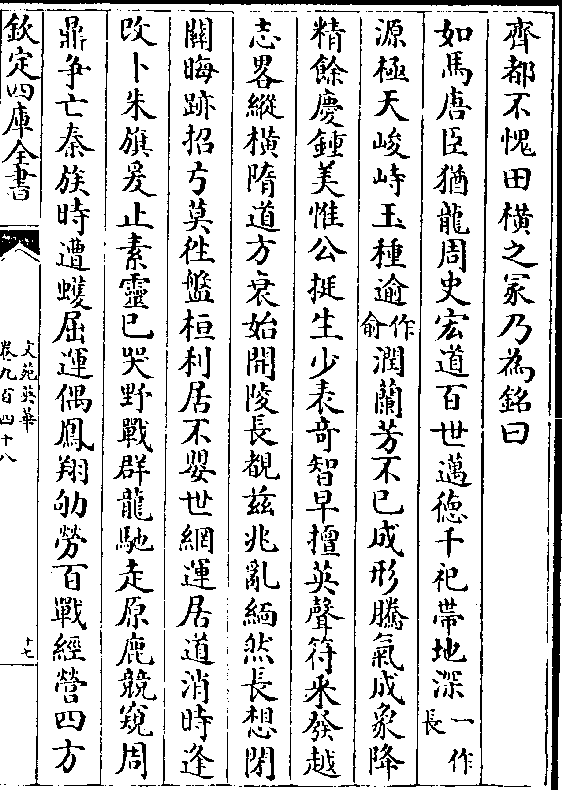 齊都不愧田横之冢乃為銘曰
如馬唐臣猶龍周史宏道百世邁徳千祀帶地深一作長
源極天峻峙玉種逾作俞潤蘭芳不已成形騰氣成象降
精餘慶鍾美惟公挺生少表竒智早擅英聲符采發越
志畧縱横隋道方衰始開陵長覩兹兆亂緬然長想閉
關晦跡招弓莫徃盤桓利居不嬰世網運居道消時逢
改卜朱旗爰止素靈已哭野戰群龍馳走原鹿競窺周
鼎争亡秦族時遭蠖屈運偶鳳翔劬勞百戰經營四方
欽定四庫全書
文苑英華
卷九百四十八
十七